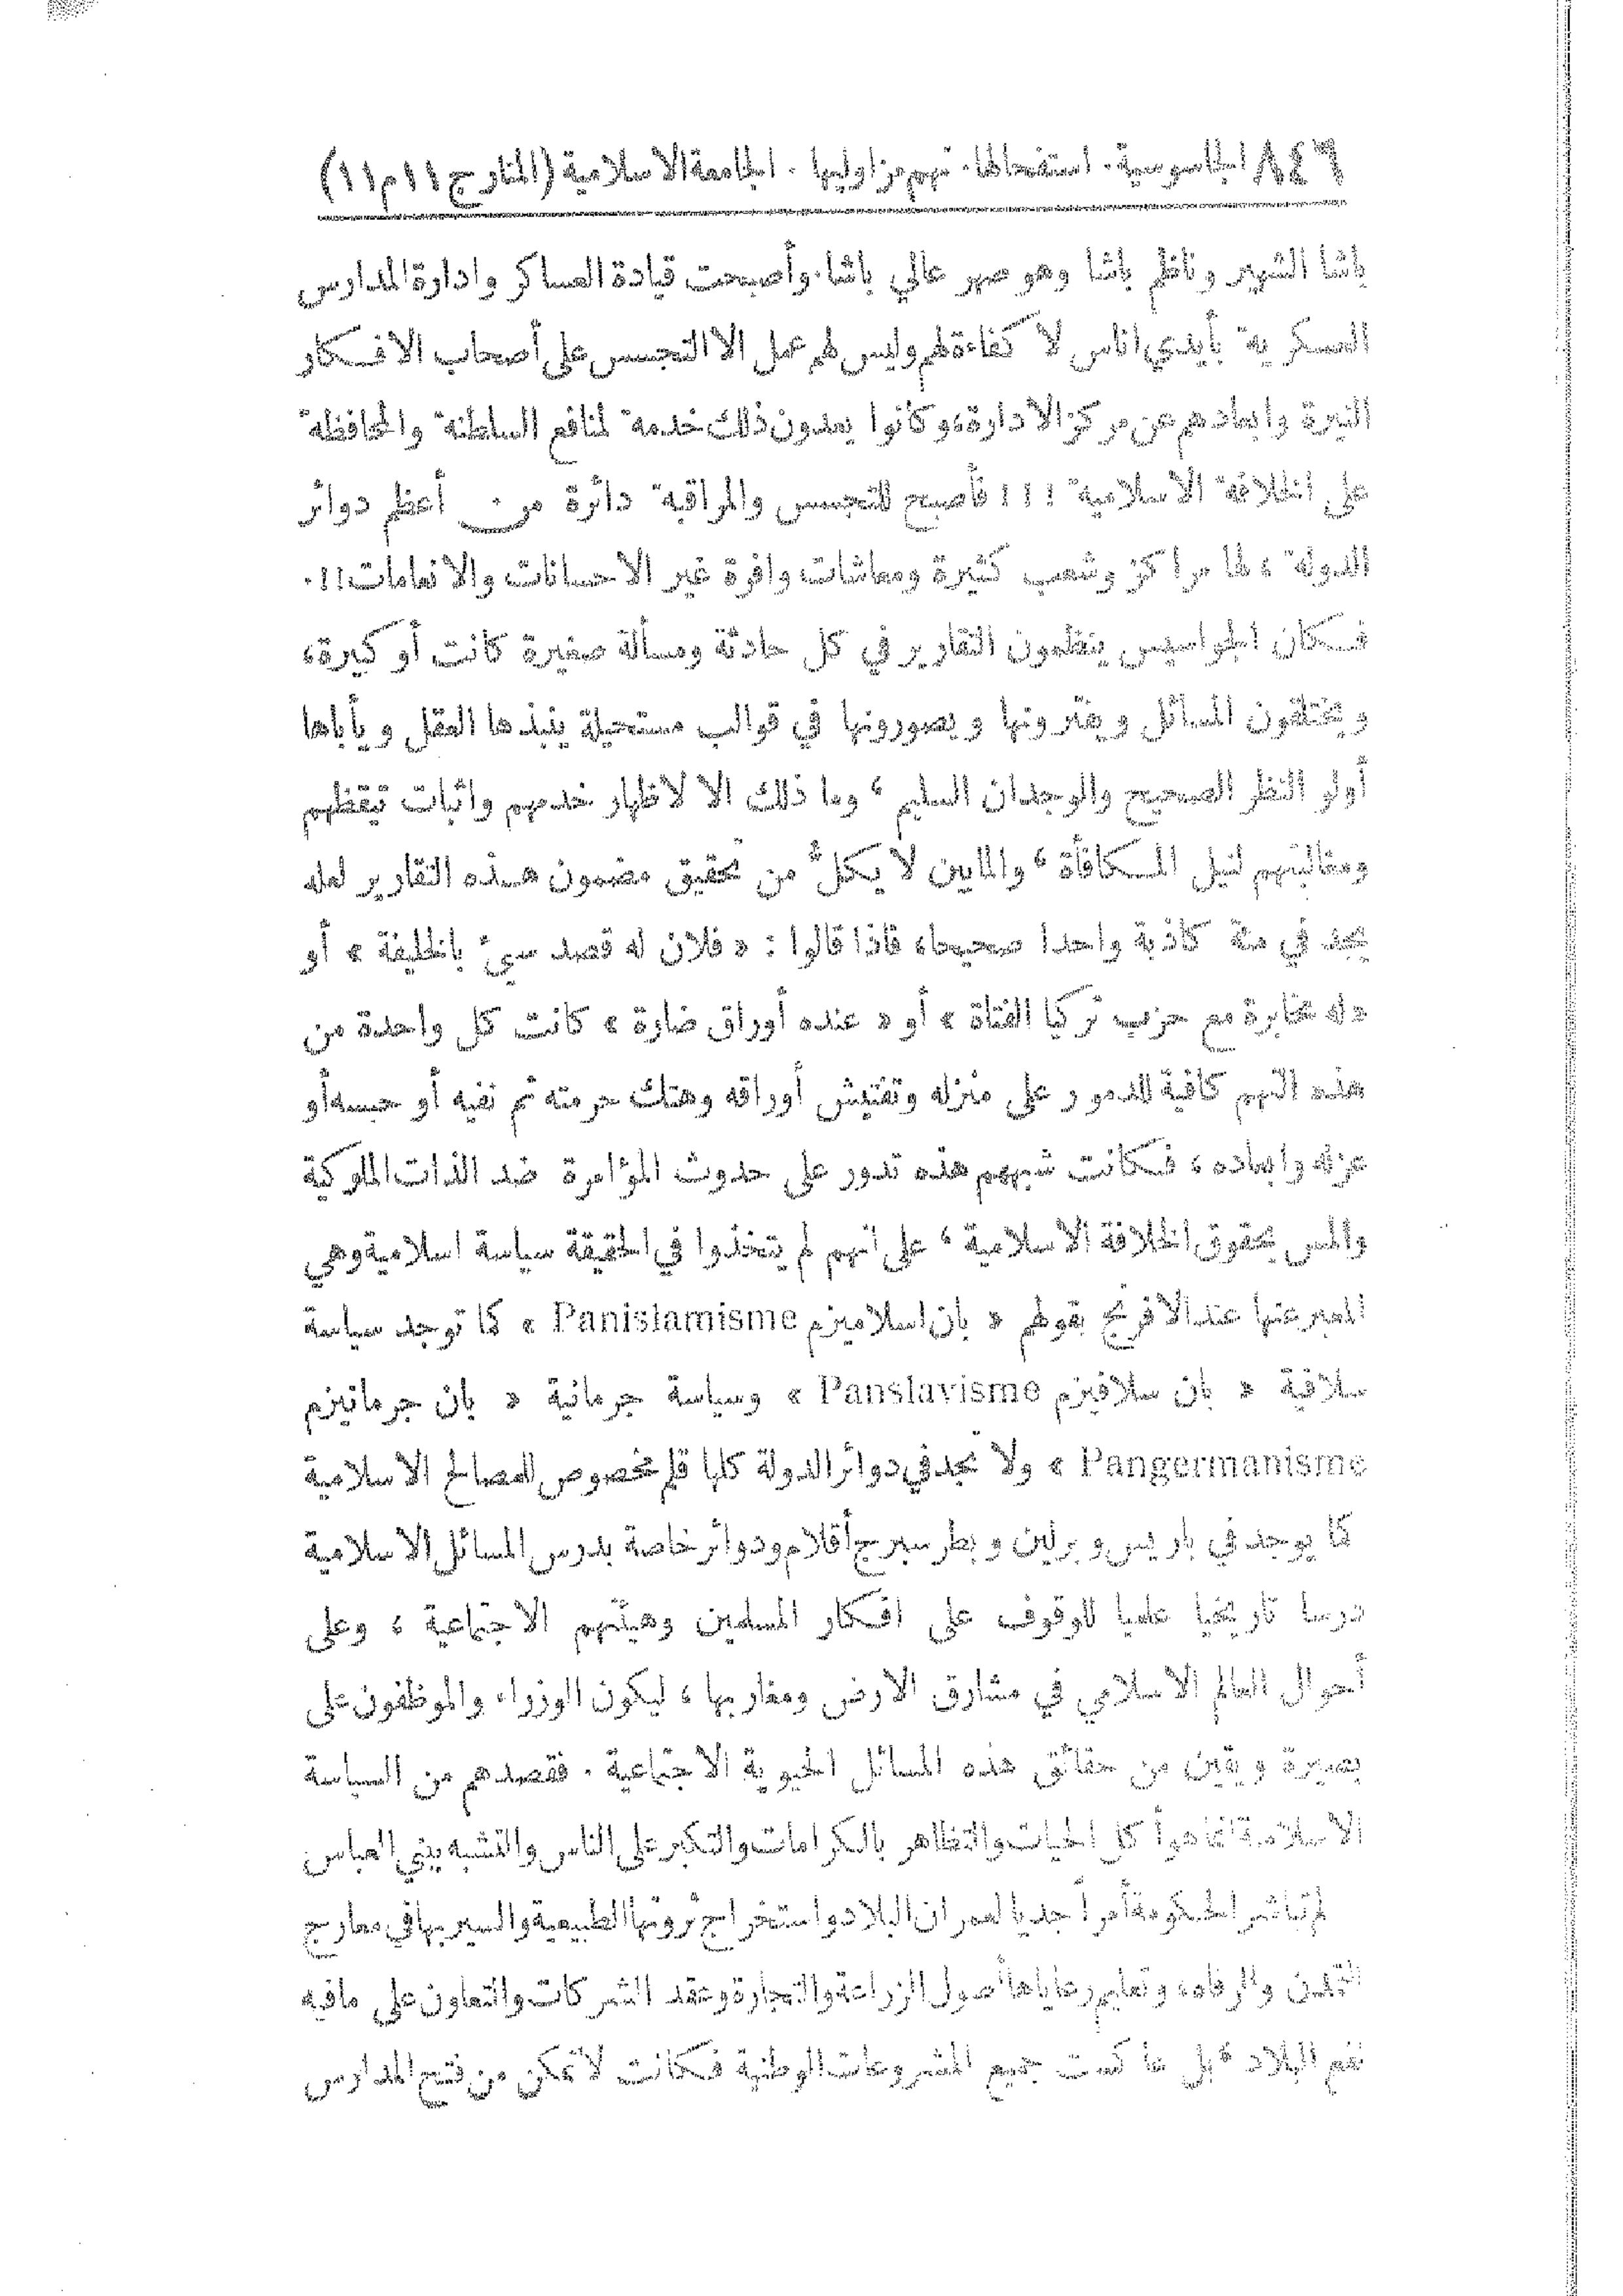 ٨٤٦ الجاسوسية. استفحالها. تهم مزاوليها. الجامعة الاسلامية (المنار ج ١١ م ١١)
باشا الشهير وناظم باشا وهو صهر عالي باشا. وأصبحت قيادة العساكر وادارة المدارس
العسكرية بأيدي اناس لا كفاءة لهم وليس لهم عمل الا التجسس على أصحاب الافكار
النيرة وابعادهم عن مركز الادارة، وكانوا يعدون ذلك خدمة لمنافع السلطنة والمحافظة
على الخلافة الاسلامية !!! فأصبح للتجسس والمراقبة دائرة من أعظم دوائر
الدولة ، لها مراكز وشعب كثيرة ومعاشات وافرة غير الاحسانات والانعامات!!.
فكان الجواسيس ينظمون التقارير في كل حادثة ومسألة صغيرة كانت أو كبيرة،
ويختلقون المسائل ويفترونها ويصورونها في قوالب مستحيلة ينبذها العقل ويأباها
أولو النظر الصحيح والوجدان السليم ، وما ذلك الا لاظهار خدمهم واثبات تيقظهم
ومغاليتهم لنيل المكافأة ، والمابين لا يكلّ من تحقيق مضمون هذه التقارير لعله
يجد في مئة كاذبة واحدا صحيحا، فاذا قالوا : « فلان له قصد سيئ بالخليفة » أو
«له مخابرة مع حزب تركيا الفتاة » أو « عنده أوراق ضارة » كانت كل واحدة من
هذه التهم كافية للدمور على منزله وتفتيش أوراقه وهتك حرمته ثم نفيه أو حبسه أو
عزله وابعاده ، فكانت شبههم هذه تدور على حدوث المؤامرة ضد الذات الملوكية
والمس بحقوق الخلافة الاسلامية ، على انهم لم يتخذوا في الحقيقة سياسة اسلامية وهي
المعبر عنها عند الافرنج بقولهم « بان اسلاميزم Panislamisme » كما توجد سياسة
سلافية « بان سلافيزم Panslavisme » وسياسة جرمانية « بان جرمانيزم
Pangermanisme » ولا تجد في دوائر الدولة كلها قلم مخصوص للمصالح الاسلامية
كما يوجد في باريس وبرلين وبطرسبرج أقلام ودوائر خاصة بدرس المسائل الاسلامية
درسا تاريخيا علميا للوقوف على افكار المسلمين وهيئتهم الاجتماعية ، وعلى
أحوال العالم الاسلامي في مشارق الارض ومغاربها ، ليكون الوزراء والموظفون على
بصيرة ويقين من حقائق هذه المسائل الحيوية الاجتماعية . فقصدهم من السياسة
الاسلامية انما هو أكل الحيات والتظاهر بالكرامات والتكبر على الناس والتشبه ببني العباس
لم تباشر الحكومة أمرا جديا لعمران البلاد واستخراج ثروتها الطبيعية والسير بها في معارج
التمدن والرفاه، وتعليم رعاياها أصول الزراعة والتجارة وعقد الشركات والتعاون على ما فيه
البلاد ، بل عاكست جميع المشروعات الوطنية فكانت لا تمكن من فتح المدارس